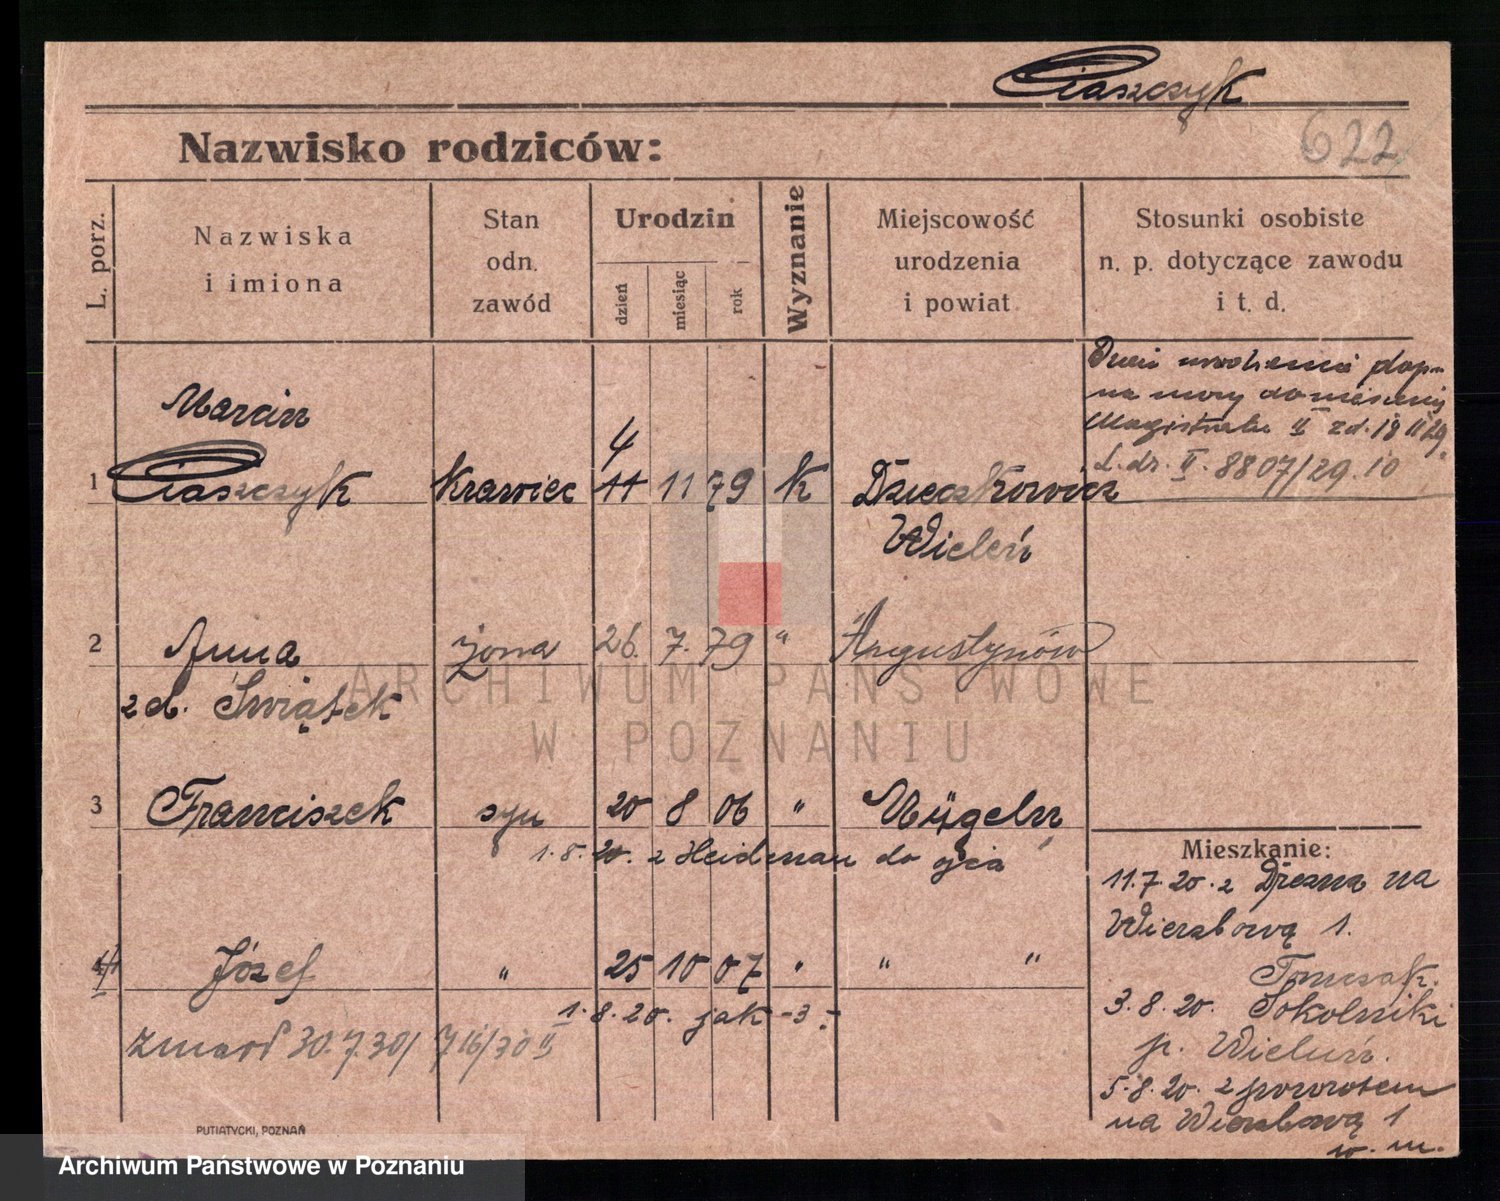 Ciaszczyk
Nazwisko rodziców:
622
L. porz.
Nazwiska
i imiona
Stan
odn.
zawód
Urodzin
dzień
miesiąc
rok
Wyznanie
Miejscowość
urodzenia
i powiat
Stosunki osobiste
n. p. dotyczące zawodu
i t. d.
Dzień urodzenia
na mocy doniesienia
Magistratu II z d. 18 11 29.
L. dz. II. 8807/29.10
Marcin
4
1 Ciaszczyk krawiec 11 11 79 k Dzieczkowice
Wieluń
2 Anna żona 26. 7. 79 " Augustynów
z d. Świątek
3 Franciszek syn 20 8 06 " Mügeln
1.8.20. z Heidenau do ojca
Mieszkanie:
11.7.20. z Drezna na
Wierzbową 1.
Tomczak.
4 Józef " 25 10 07 " " "
1.8.20. jak -3.-
3.8.20. Sokolniki
p. Wieluń.
zmarł 30.7.30/ 716/30 II
5.8.20. z powrotem
na Wierzbową 1
w. m.
PUTIATYCKI, POZNAŃ
ARCHIWUM PAŃSTWOWE
W POZNANIU
Archiwum Państwowe w Poznaniu